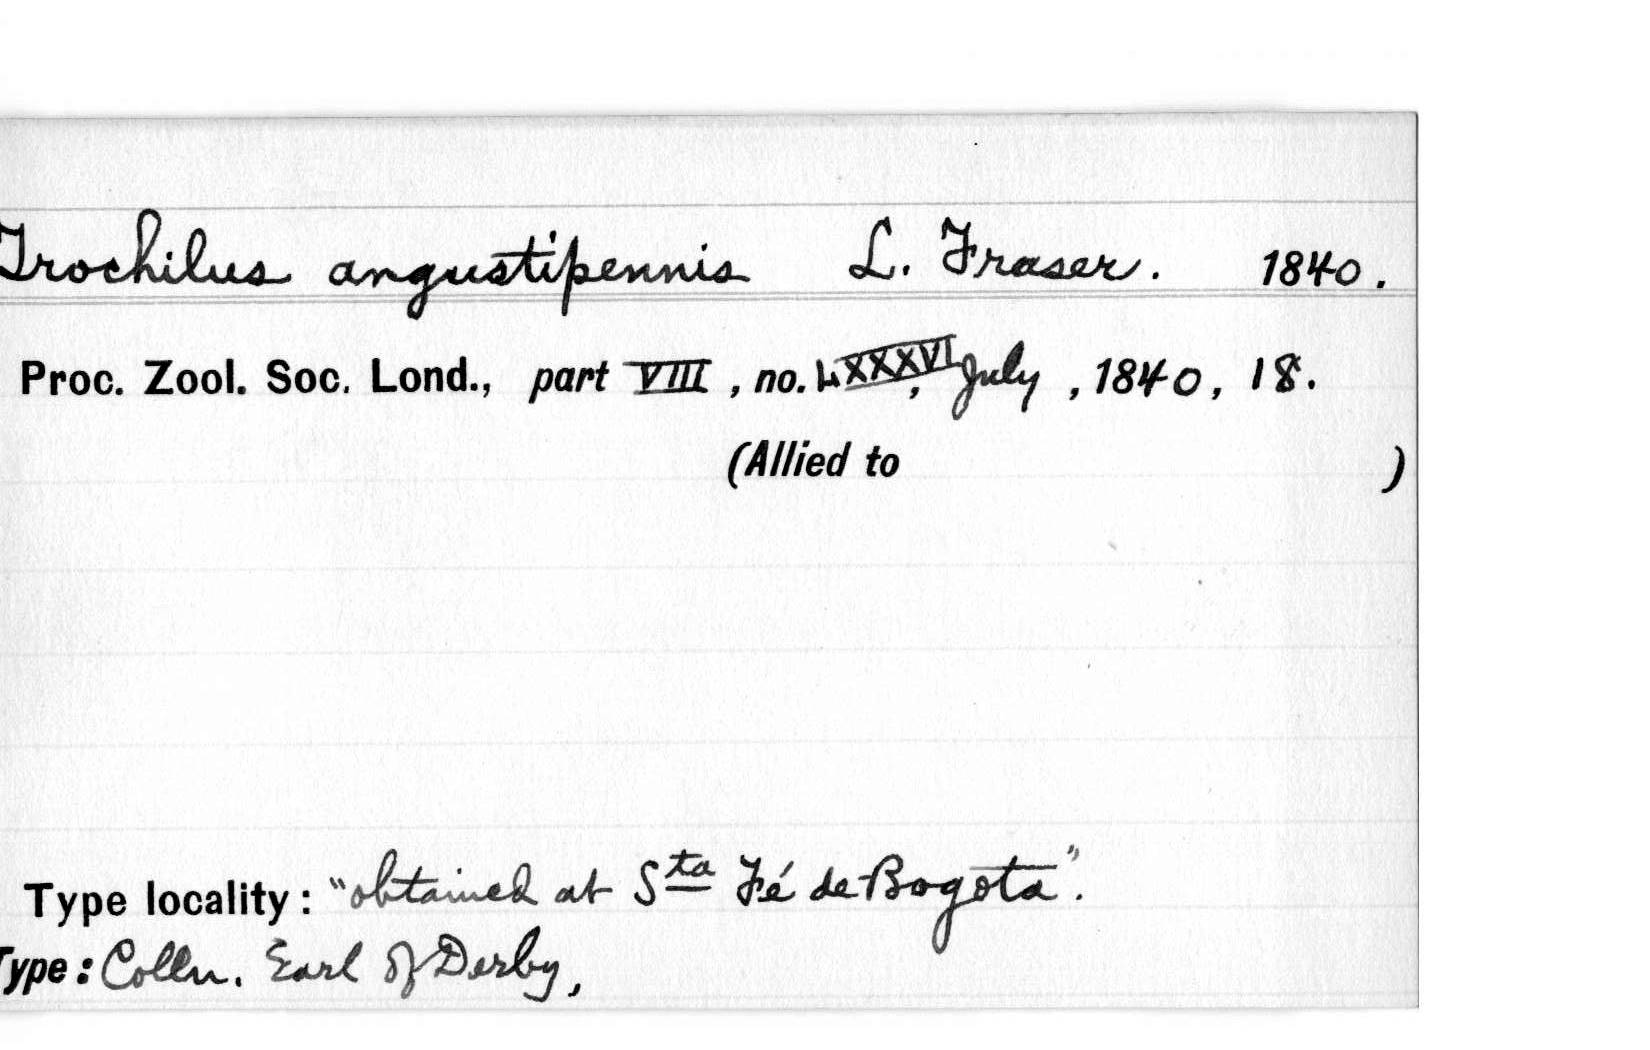 Trochilus angustipennis L. Fraser. 1840.
Proc. Zool. Soc. Lond., part VIII, no. LXXXVI, July, 1840, 18.
(Allied to )
Type locality: "obtained at Sta Fé de Bogota".
Type: Colln. Earl of Derby,